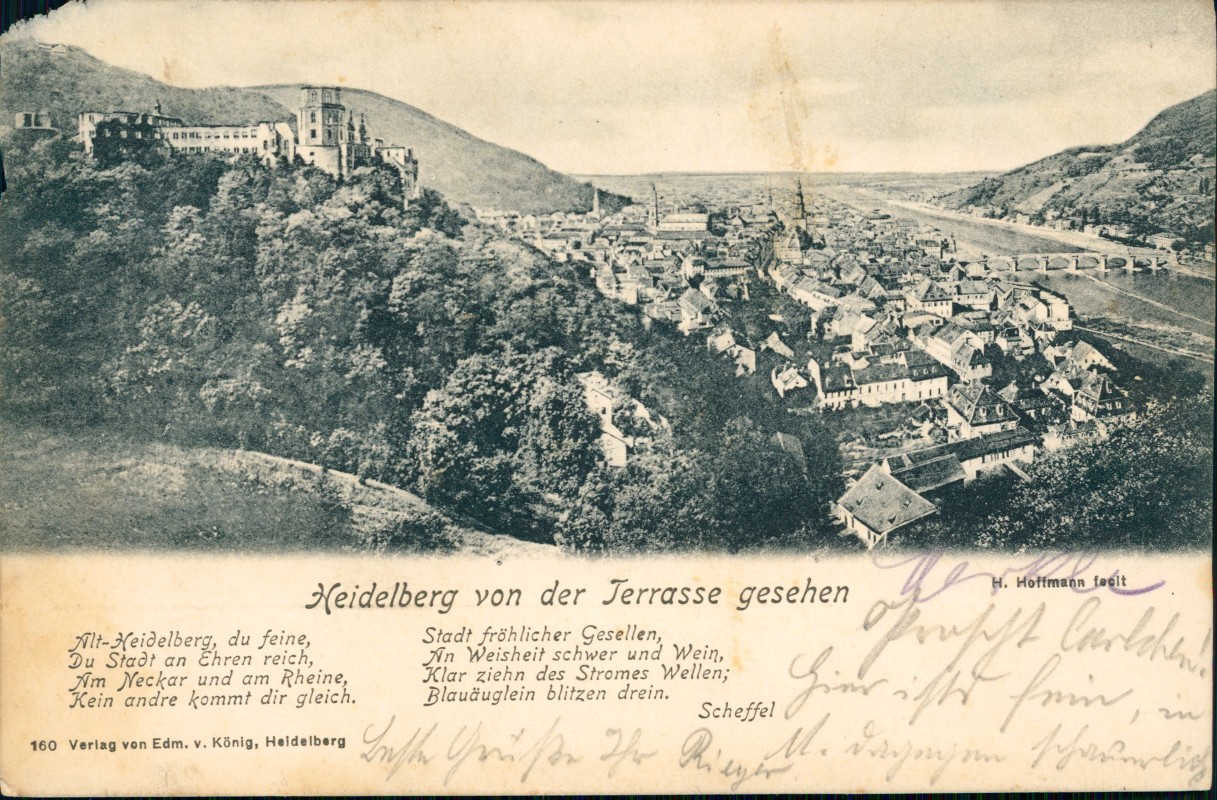 Heidelberg von der Terrasse gesehen
H. Hoffmann fecit
Alt-Heidelberg, du feine,
Du Stadt an Ehren reich,
Am Neckar und am Rheine,
Kein andre kommt dir gleich.
Stadt fröhlicher Gesellen,
An Weisheit schwer und Wein,
Klar ziehn des Stromes Wellen;
Blauäuglein blitzen drein.
Scheffel
160 Verlag von Edm. v. König, Heidelberg
Prosst Carlchen!
Hier ists fein, in
M. dagegen schauerlich
Beste Grüße Ihr Rieger